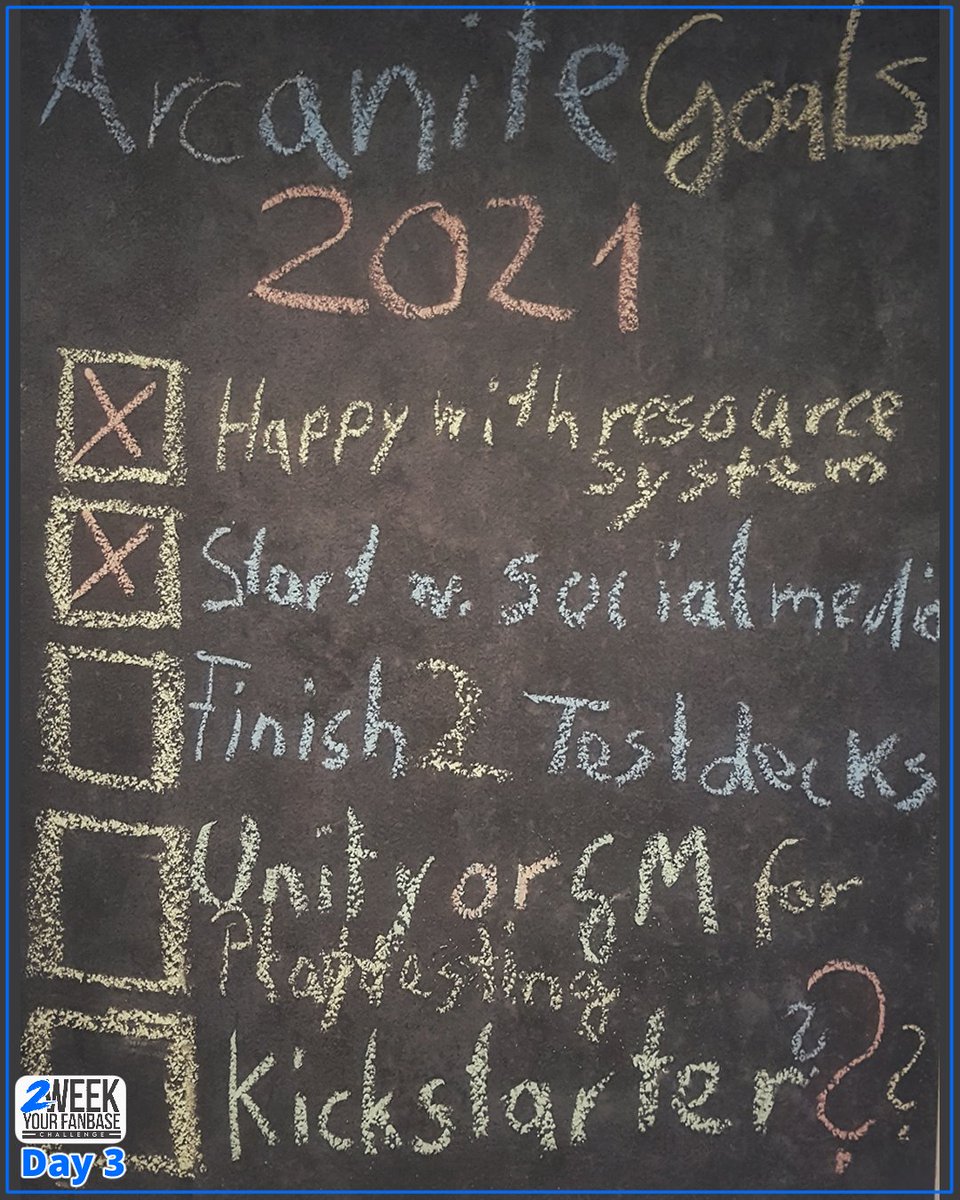 Arcanite Goals
2021
Happy with resource
system
Start w. social media
Finish 2 Testdecks
Unity or GM for
Playtesting
Kickstarter ???
2WEEK
YOUR FANBASE
CHALLENGE
Day 3